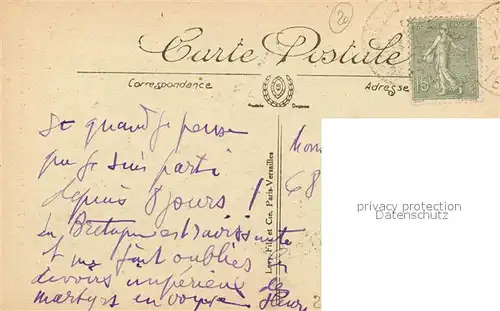 20
Carte Postale
Correspondance
Adresse
15
Et quand je pense
que je suis parti
depuis 8 jours !
La Bretagne est ravissante
et me fait oublier
devoirs impérieux de
martyrs en
Lévy Fils et Cie, Paris-Versailles
Mons
68
privacy protection
Datenschutz